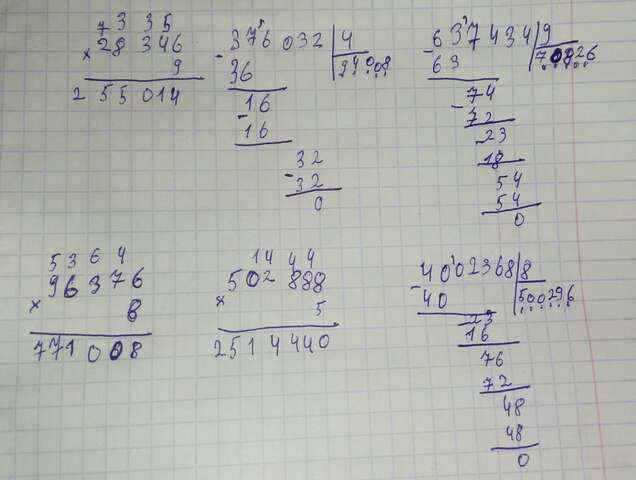 7 3 3 5
28 346
×
9
2 55 014
376 032 4
- 36 94 008
16
- 16
32
- 32
0
637434 9
- 63 70826
74
- 72
23
- 18
54
54
0
5 3 6 4
96376
×
8
771 008
1 4 4 4
502 888
×
5
2514440
4002368 8
- 40 500296
23
16
76
72
48
48
0